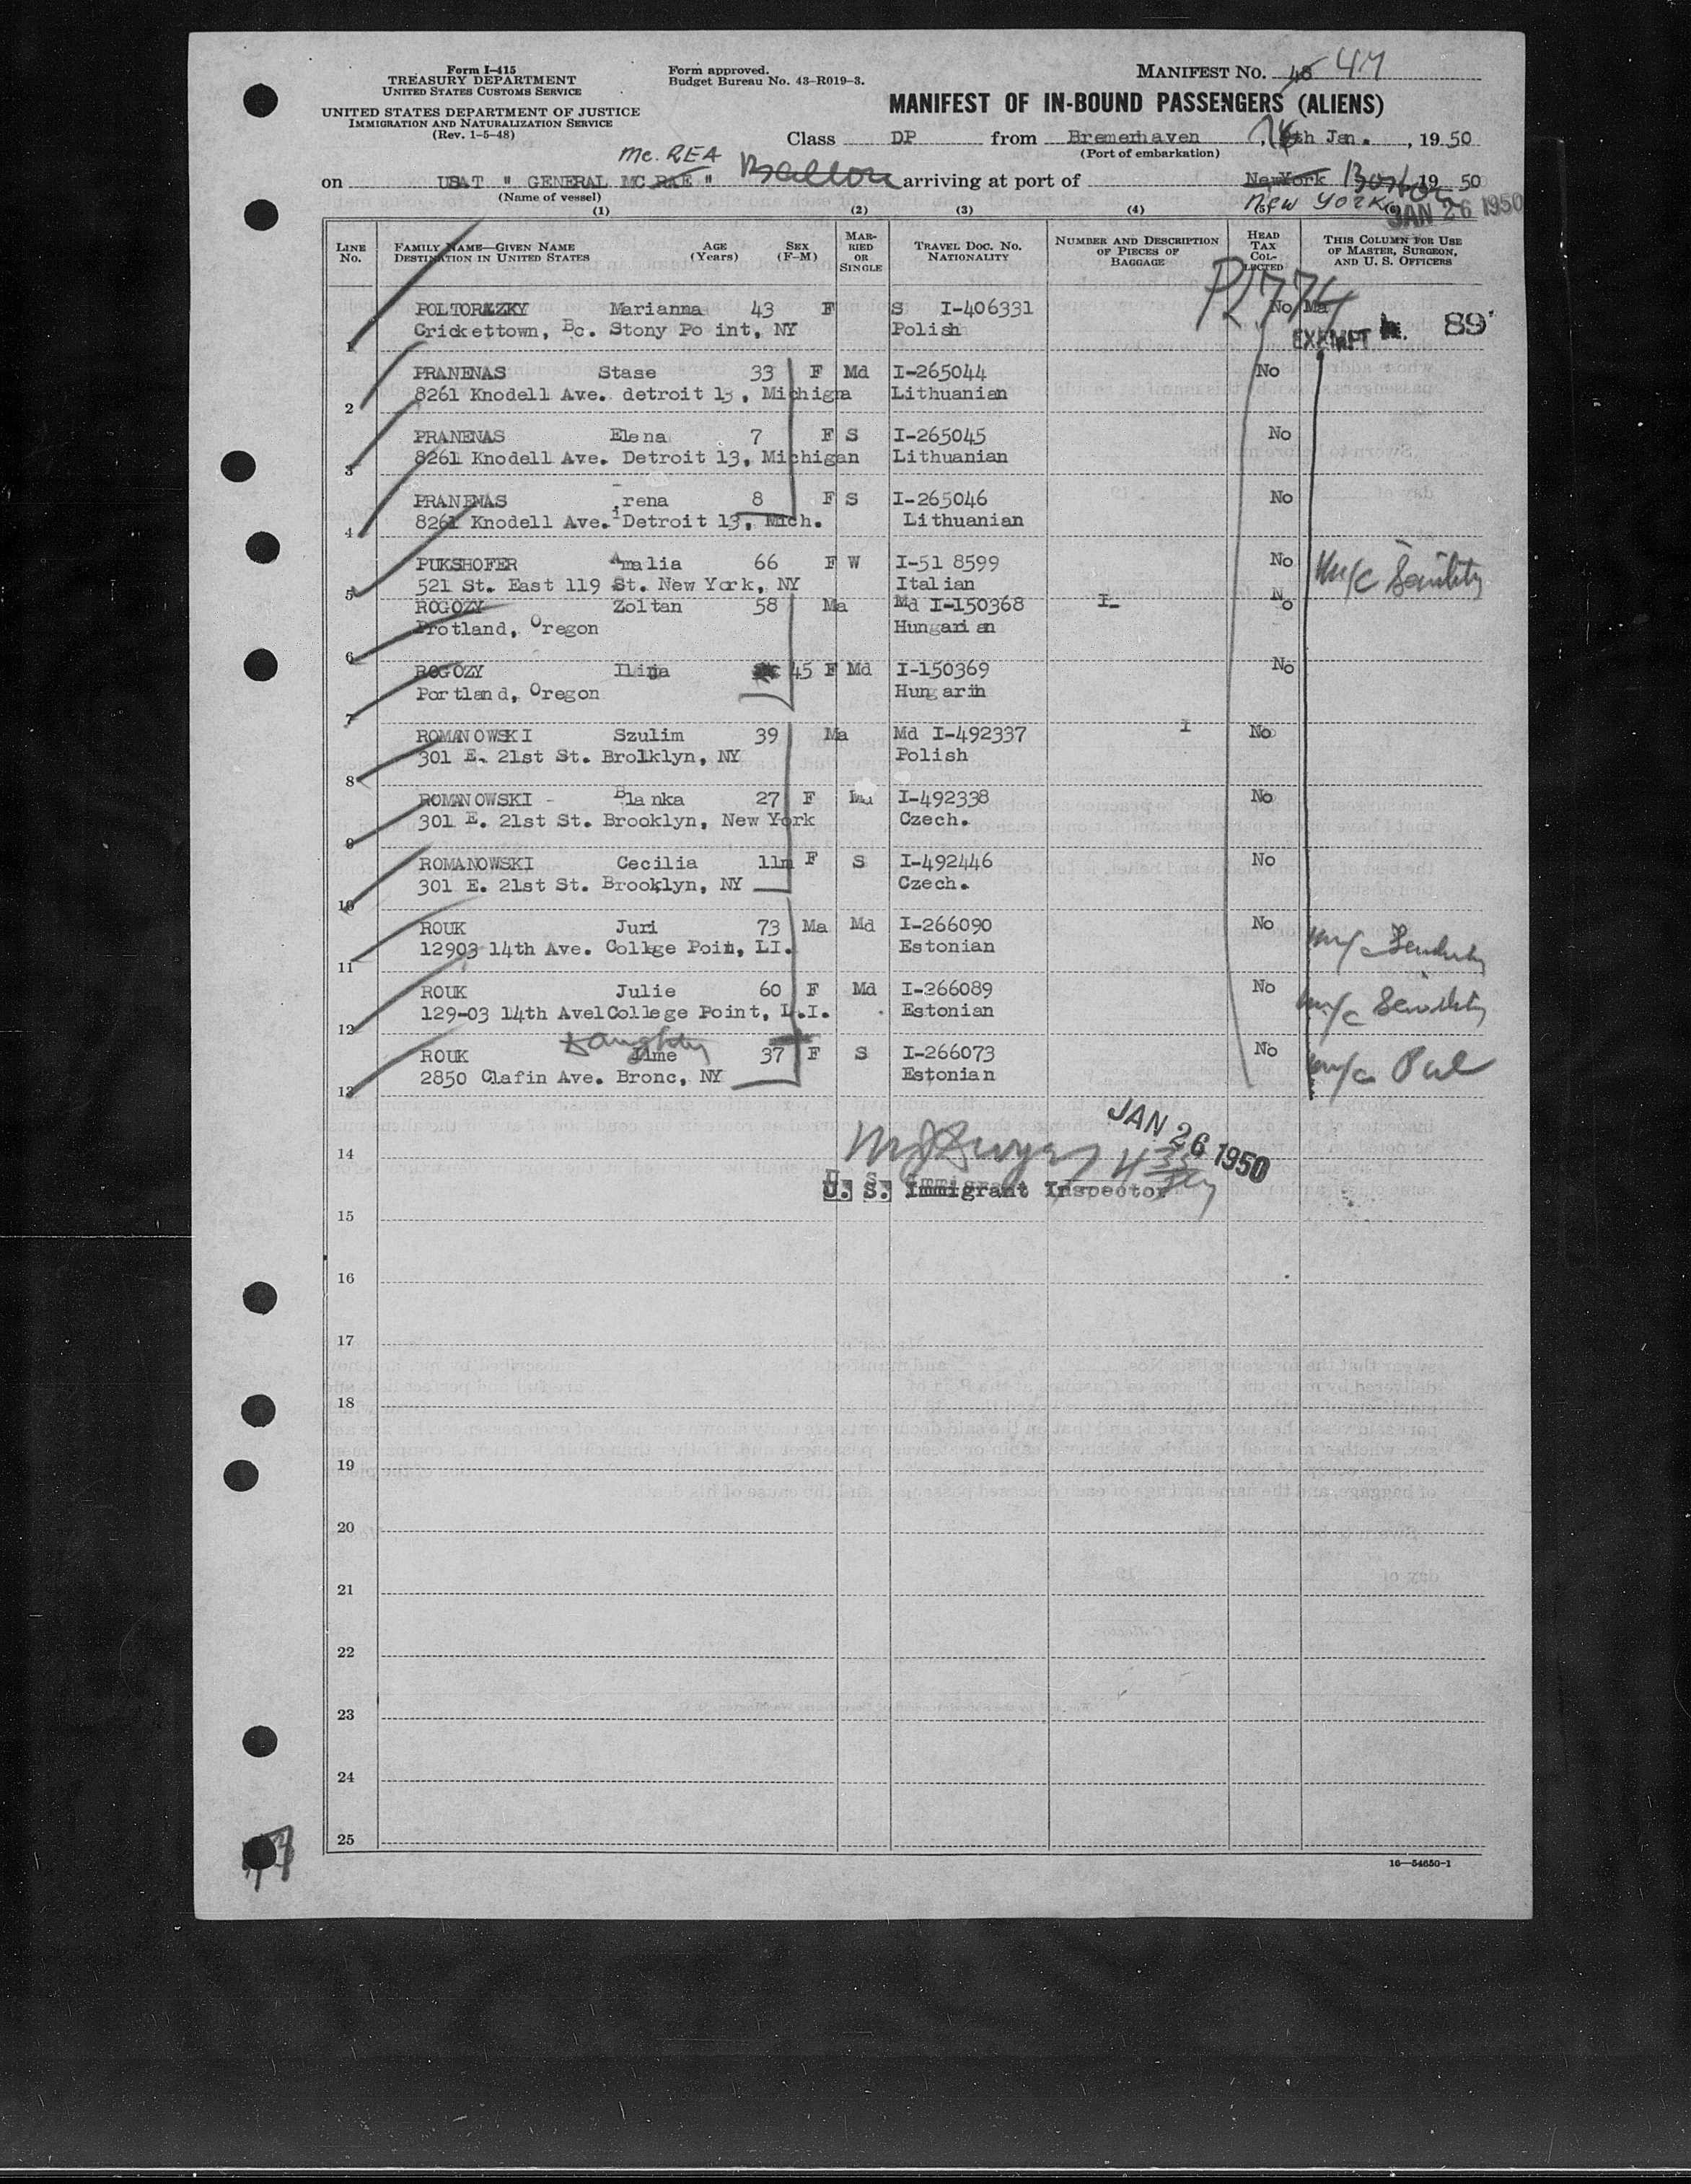 Form I-415
TREASURY DEPARTMENT
UNITED STATES CUSTOMS SERVICE
UNITED STATES DEPARTMENT OF JUSTICE
IMMIGRATION AND NATURALIZATION SERVICE
(Rev. 1-5-48)
Form approved.
Budget Bureau No. 43-R019-3.
MANIFEST NO. 48 47
MANIFEST OF IN-BOUND PASSENGERS (ALIENS)
Class DP from Bremerhaven , th Jan. , 19 50
(Port of embarkation)
Mc. REA
on USAT " GENERAL MC RAE " arriving at port of New York Boston 19 50
(Name of vessel) New York JAN 26 1950
(1) (2) (3) (4) (5) (6)
LINE NO. FAMILY NAME—GIVEN NAME DESTINATION IN UNITED STATES AGE (Years) SEX (F-M) MARRIED OR SINGLE TRAVEL DOC. NO. NATIONALITY NUMBER AND DESCRIPTION OF PIECES OF BAGGAGE HEAD TAX COLLECTED THIS COLUMN FOR USE OF MASTER, SURGEON, AND U. S. OFFICERS
POLTORAZKY Marianna 43 F S I-406331 No Ma
1 Crickettown, Bc. Stony Po int, NY Polish EXEMPT 89
PRANENAS Stase 33 F Md I-265044 No
2 8261 Knodell Ave. detroit 13, Michigra Lithuanian
PRANENAS Elena 7 F S I-265045 No
3 8261 Knodell Ave. Detroit 13, Michigan Lithuanian
PRANENAS irena 8 F S I-265046 No
4 8261 Knodell Ave. Detroit 13, Mich. Lithuanian
PUKSHOFER Amalia 66 F W I-51 8599 No Senility
5 521 St. East 119 St. New York, NY Italian
ROGOZY Zoltan 58 Ma Md I-150368 1 No
6 Protland, Oregon Hungarian
ROGOZY 45 F Md I-150369 No
7 Portland, Oregon Hungarin
ROMANOWSKI Szulim 39 Ma Md I-492337 1 No
8 301 E. 21st St. Brolklyn, NY Polish
ROMANOWSKI - Blanka 27 F Md I-492338 No
9 301 E. 21st St. Brooklyn, New York Czech.
ROMANOWSKI Cecilia 11m F S I-492446 No
10 301 E. 21st St. Brooklyn, NY Czech.
ROUK Juri 73 Ma Md I-266090 No Senility
11 12903 14th Ave. Collge Point, LI. Estonian
ROUK Julie 60 F Md I-266089 No Senility
12 129-03 14th AvelCollege Point, L.I. Estonian
Daughter
ROUK Ilme 37 F S I-266073 No
13 2850 Clafin Ave. Bronc, NY Estonian
JAN 26 1950
14
U. S. Immigrant Inspector
15
16
17
18
19
20
21
22
23
24
25
16—54650-1